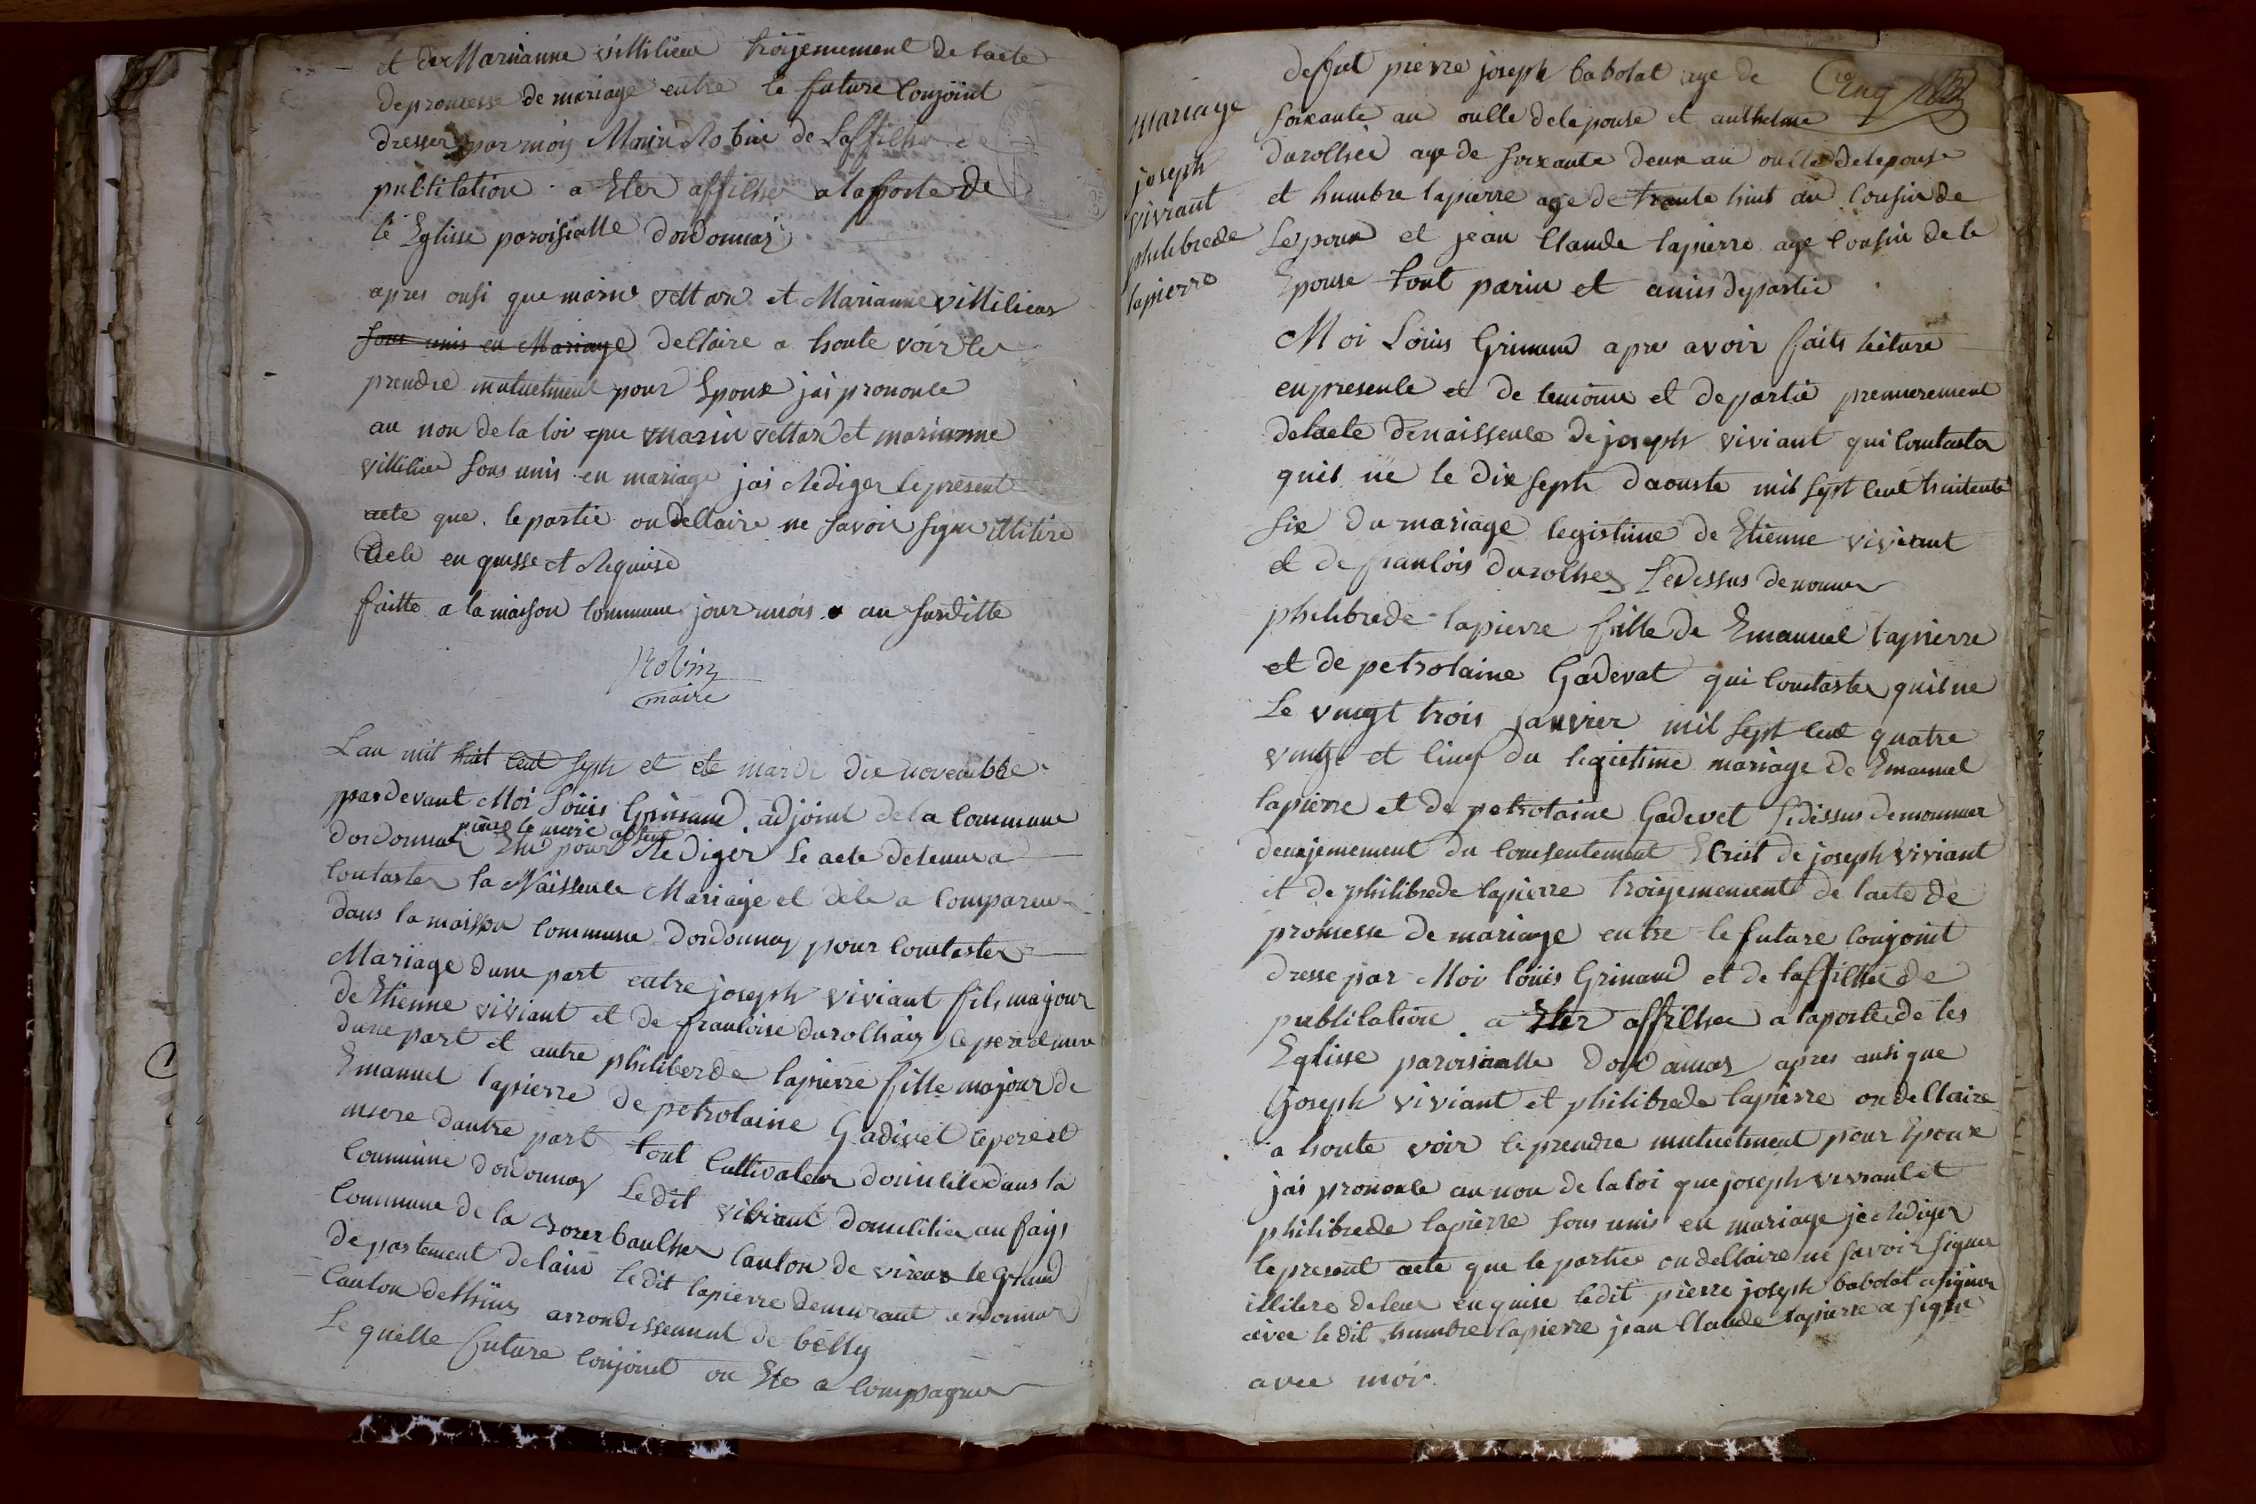 et de Marianne villilieu troisjemement de lacte
de promesse de mariage entre le future Conjoint
dresser par moy Maire Robin de Laffilher de
publilation a Eter affilher a la porte de
le Eglisse paroisialle dordonnas
apres onsi que marin vettar et Marianne villilieus
sous unis en Mariage dellaire a houte voir le
prendre mutuelment pour Epoux jai prononle
au non de la loi que marin vettar et marianne
villilieu sous unis en mariage jai Rediger le present
acte que le partie on dellaire ne savoir signe illitire
de le enquisse et Requise
faitte a la maison Commune jour mois au surditte
Robin
maire
L an mil huit Cent seph et ete mardi dix novembbre
pardevant Moi Louis Grinand adjoint de la Commune
pour le maire absent
dordonnas Elu pour Rediger le acte detenue a
Contaster la Naissenle Mariage et dele a Compareu
dans la maison Commune dordonnas pour Contaster
Mariage dune part entre joseph viviant fils majour
de Etienne viviant et de franloise durolhais le pere et mere
dune part et autre philiberde lapierre fille majour de
Emanuel lapierre de petrolaine Gadivet le pere et
mere dautre part tout Cultivateur domilile dans la
Commune dordonnas le dit viviant domililier au fays
Commune de la Canton de vireux le Grand
departement delain le dit lapierre demurant ordonnas
Canton de lhuis arrondissement de belly
Le quelle future Conjoint on Ete a Compagner
Mariage
joseph
vivrant
philibrede
lapierre
deffut pierre joseph babolat age de
soixante an onlle de le pouse et anthelme
durolhei age de soixante deux an onlle de le pouse
et humbre lapierre age de trante huit an Cousin de
Le poux et jean Claude lapierre age Cousin de le
Epouse tout parin et amis de partie
Moi Louis Grinand apre avoir faits leiture
en presenle et de temoine et de partie premierement
de lacte de naissenle de joseph viviant qui Contaster
quil ne le dix seph daouste mil sept Cent huitente
six du mariage legistime de Etienne viviant
et de franlois durolhes Ledessus denommer
philibrede lapierre fille de Emanuel lapierre
et de petrolaine Gadevat qui Contaster quil ne
Le vingt trois janvier mil sept Cent quatre
vingt et Cinq du legistime mariage de Emanuel
lapierre et de petrolaine Gadevet sidessus denommer
deuxjemement du Consentement Ecrit de joseph viviant
et de philibrede lapierre troisjemement de lacte de
promesse de mariage entre le future Conjoint
dresse par Moi louis Grinand et de laffilher de
publilation a Eter affilher a la porte de les
Eglisse paroisialle dordonnas apres ansi que
joseph viviant et philibrede lapierre on dellaire
a houte voir le prendre mutuelment pour Epoux
jai prononle au non de la loi que joseph vivrant et
philibrede lapierre sous unis en mariage je Rediger
le present acte que le partie on dellaire ne savoir signer
illitere de leur enquise le dit pierre joseph babolat a signer
avec le dit humbre lapierre jean Claude lapierre a signe
avec moi